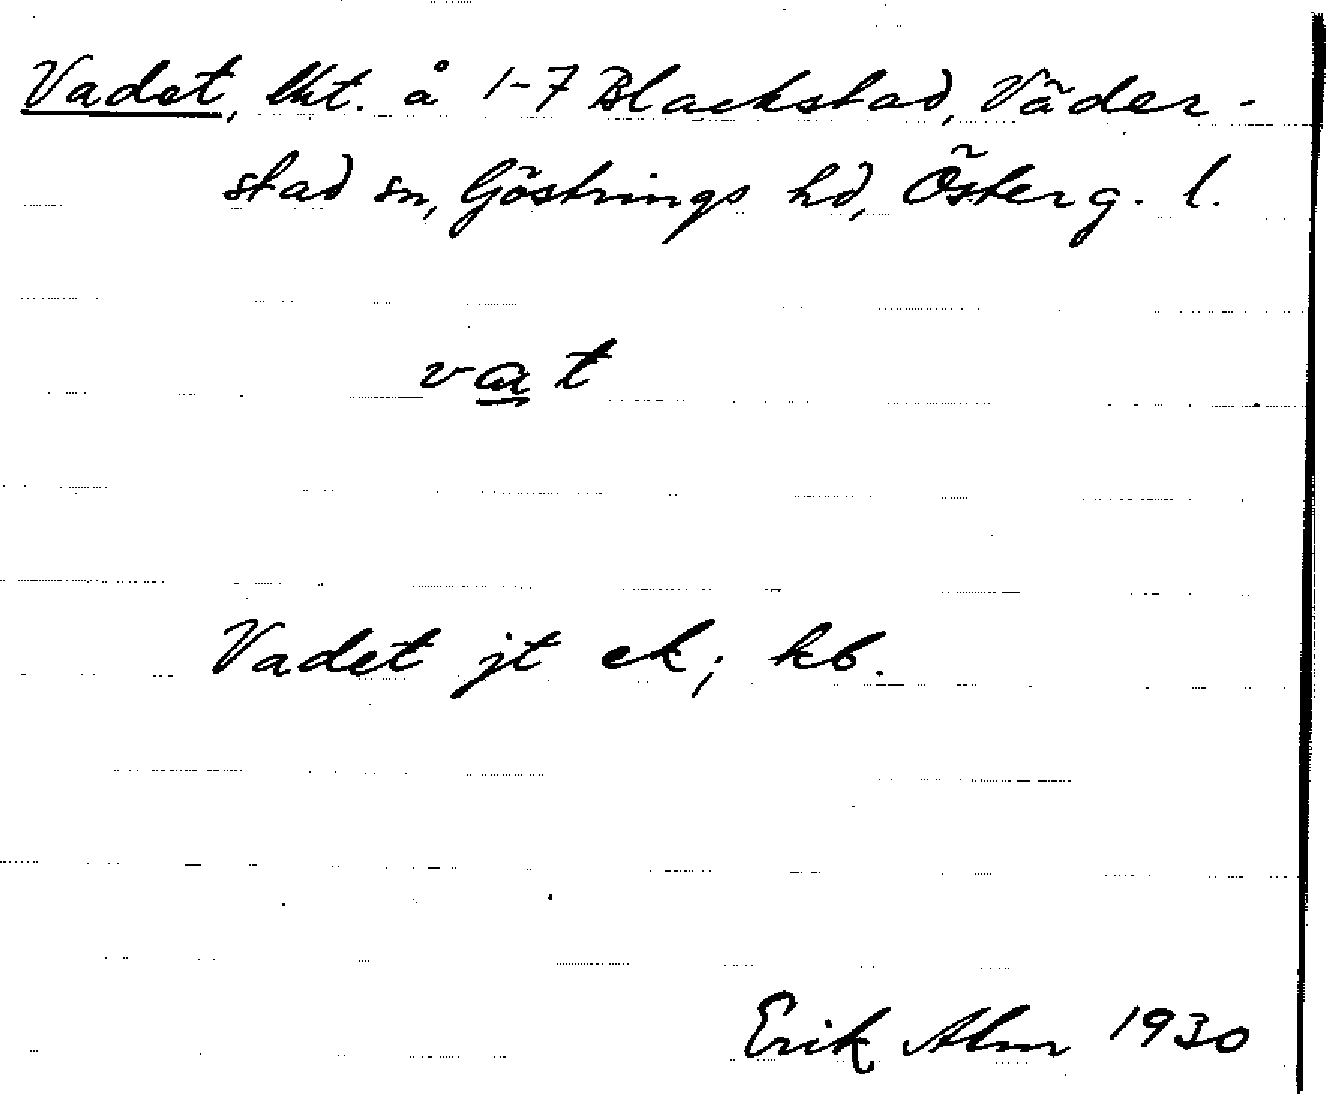 Vadet, lht. å 1-7 Blackstad, Väder-
stad sn, Göstrings hd, Österg. l.
vat
Vadet jt ek; kb.
Erik Alm 1930